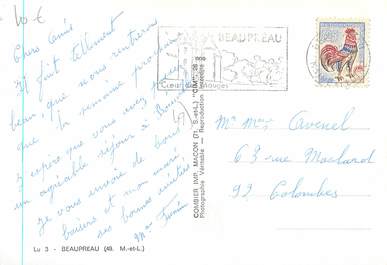 10 €
Chers Amis
Il fait tellement
beau que nous rentrerons
que la semaine prochaine
J'espère que vous avez passé
un agréable séjour à
Je vous envoie de bons
baisers et mon mari
ses bonnes amitiés
Mme
BEAUPREAU
Cœur des Mauges
COMBIER IMP. MACON (71, S.-et-L.) "CIM"
Photographie Véritable — Reproduction Interdite
M. Mme Avenel
63 rue
92 Colombes
Lu 3 - BEAUPREAU (49. M.-et-L.)